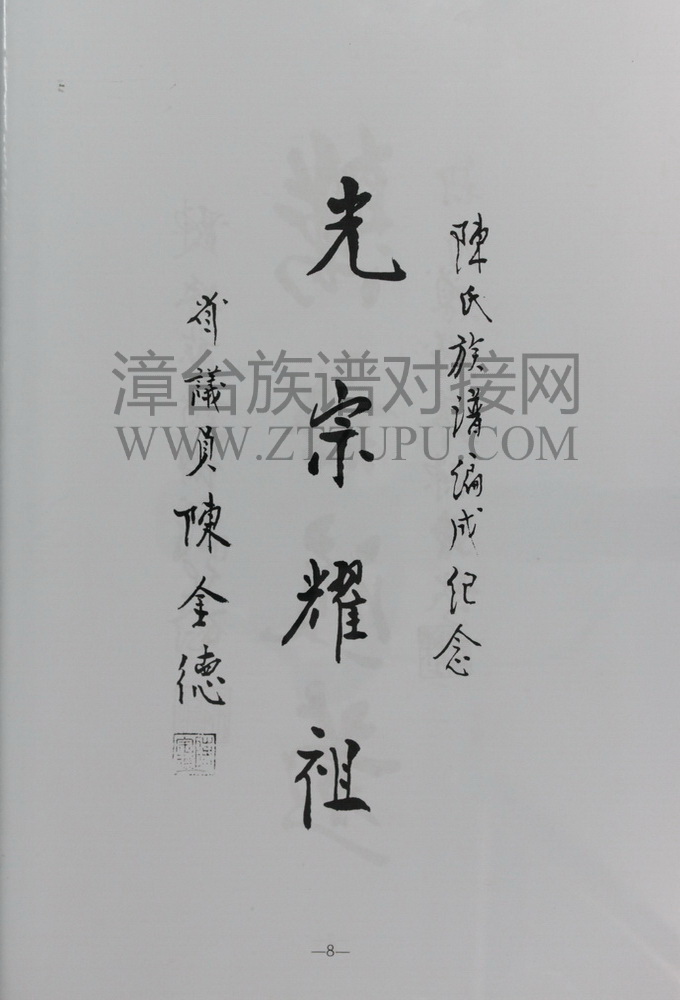 陳氏族譜編成紀念
光宗耀祖
省議員陳金德
漳台族谱对接网
WWW.ZTZUPU.COM
—8—